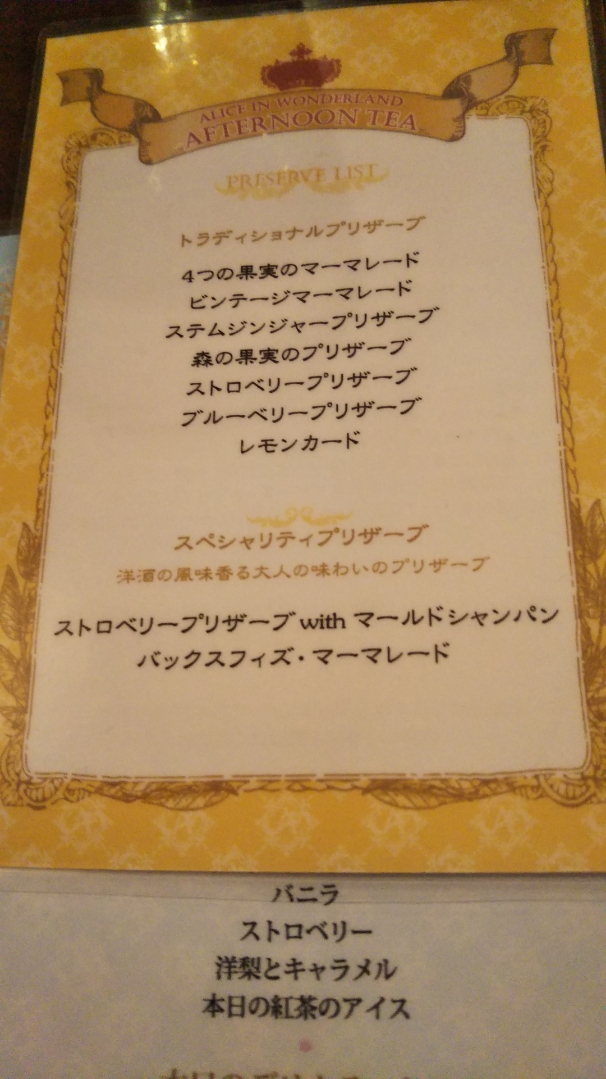 ALICE IN WONDERLAND
AFTERNOON TEA
PRESERVE LIST
トラディショナルプリザーブ
4つの果実のマーマレード
ビンテージマーマレード
ステムジンジャープリザーブ
森の果実のプリザーブ
ストロベリープリザーブ
ブルーベリープリザーブ
レモンカード
スペシャリティプリザーブ
洋酒の風味香る大人の味わいのプリザーブ
ストロベリープリザーブ with マールドシャンパン
バックスフィズ・マーマレード
バニラ
ストロベリー
洋梨とキャラメル
本日の紅茶のアイス